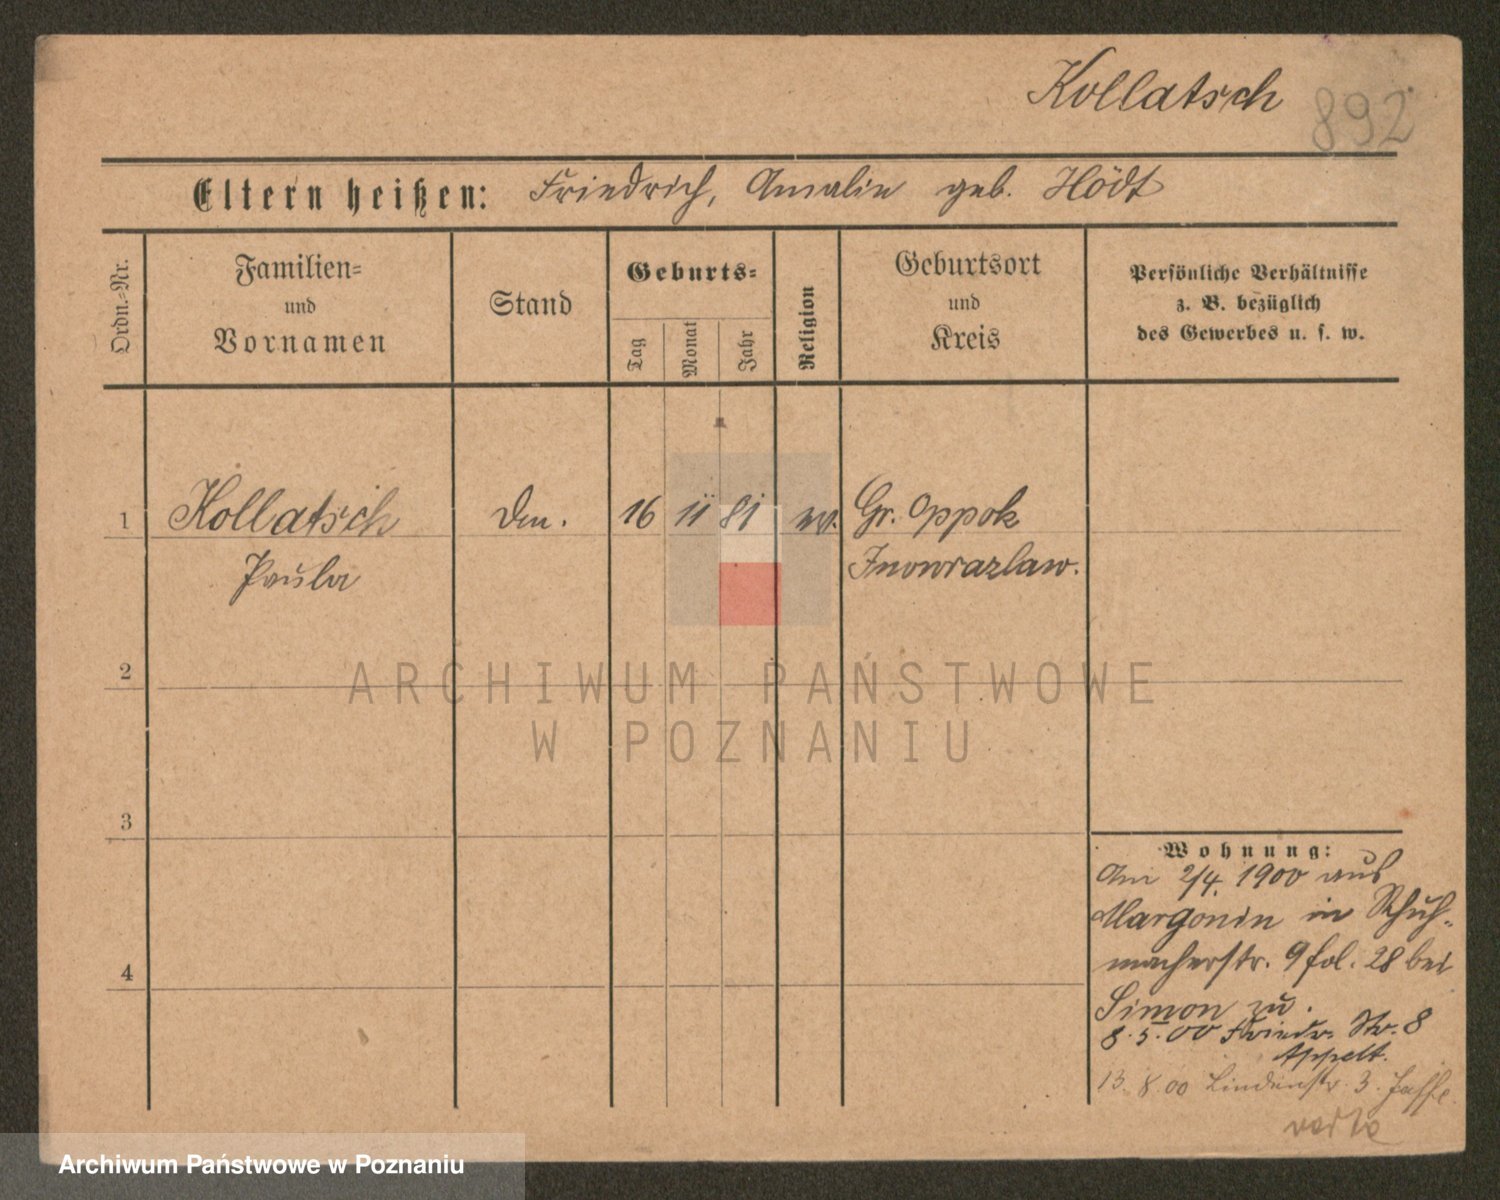 Kollatsch 892
Eltern heißen: Friedrich, Amalie geb. Hödt
Ordn.-Nr.
Familien-
und
Vornamen
Stand
Geburts-
Tag
Monat
Jahr
Religion
Geburtsort
und
Kreis
Persönliche Verhältnisse
z. B. bezüglich
des Gewerbes u. s. w.
1 Kollatsch 16 11 81 ev. Gr. Oppok
Paula Inowrazlaw.
2
3
4
Wohnung:
Am 2/4. 1900 aus
Margonin in Schuh-
macherstr. 9 fol. 28 bei
Simon zu.
8.5.00 Friedr. Str. 8
Appelt.
13.8.00 Lindenstr. 3. Jaffe.
ARCHIWUM PAŃSTWOWE
W POZNANIU
Archiwum Państwowe w Poznaniu